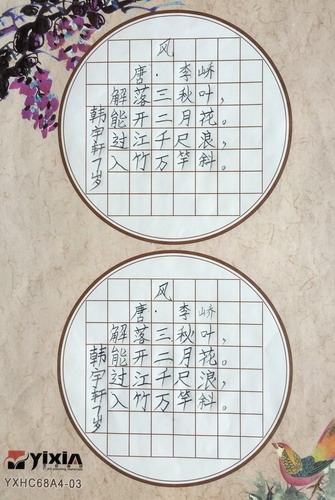 风
唐·李峤
解落三秋叶，
能开二月花。
过江千尺浪，
入竹万竿斜。
韩宇轩7岁
风
唐·李峤
解落三秋叶，
能开二月花。
过江千尺浪，
入竹万竿斜。
韩宇轩7岁
yixin
YXHC68A4-03